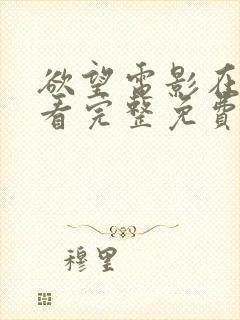 欲望雷影在
看完整免费
穆里